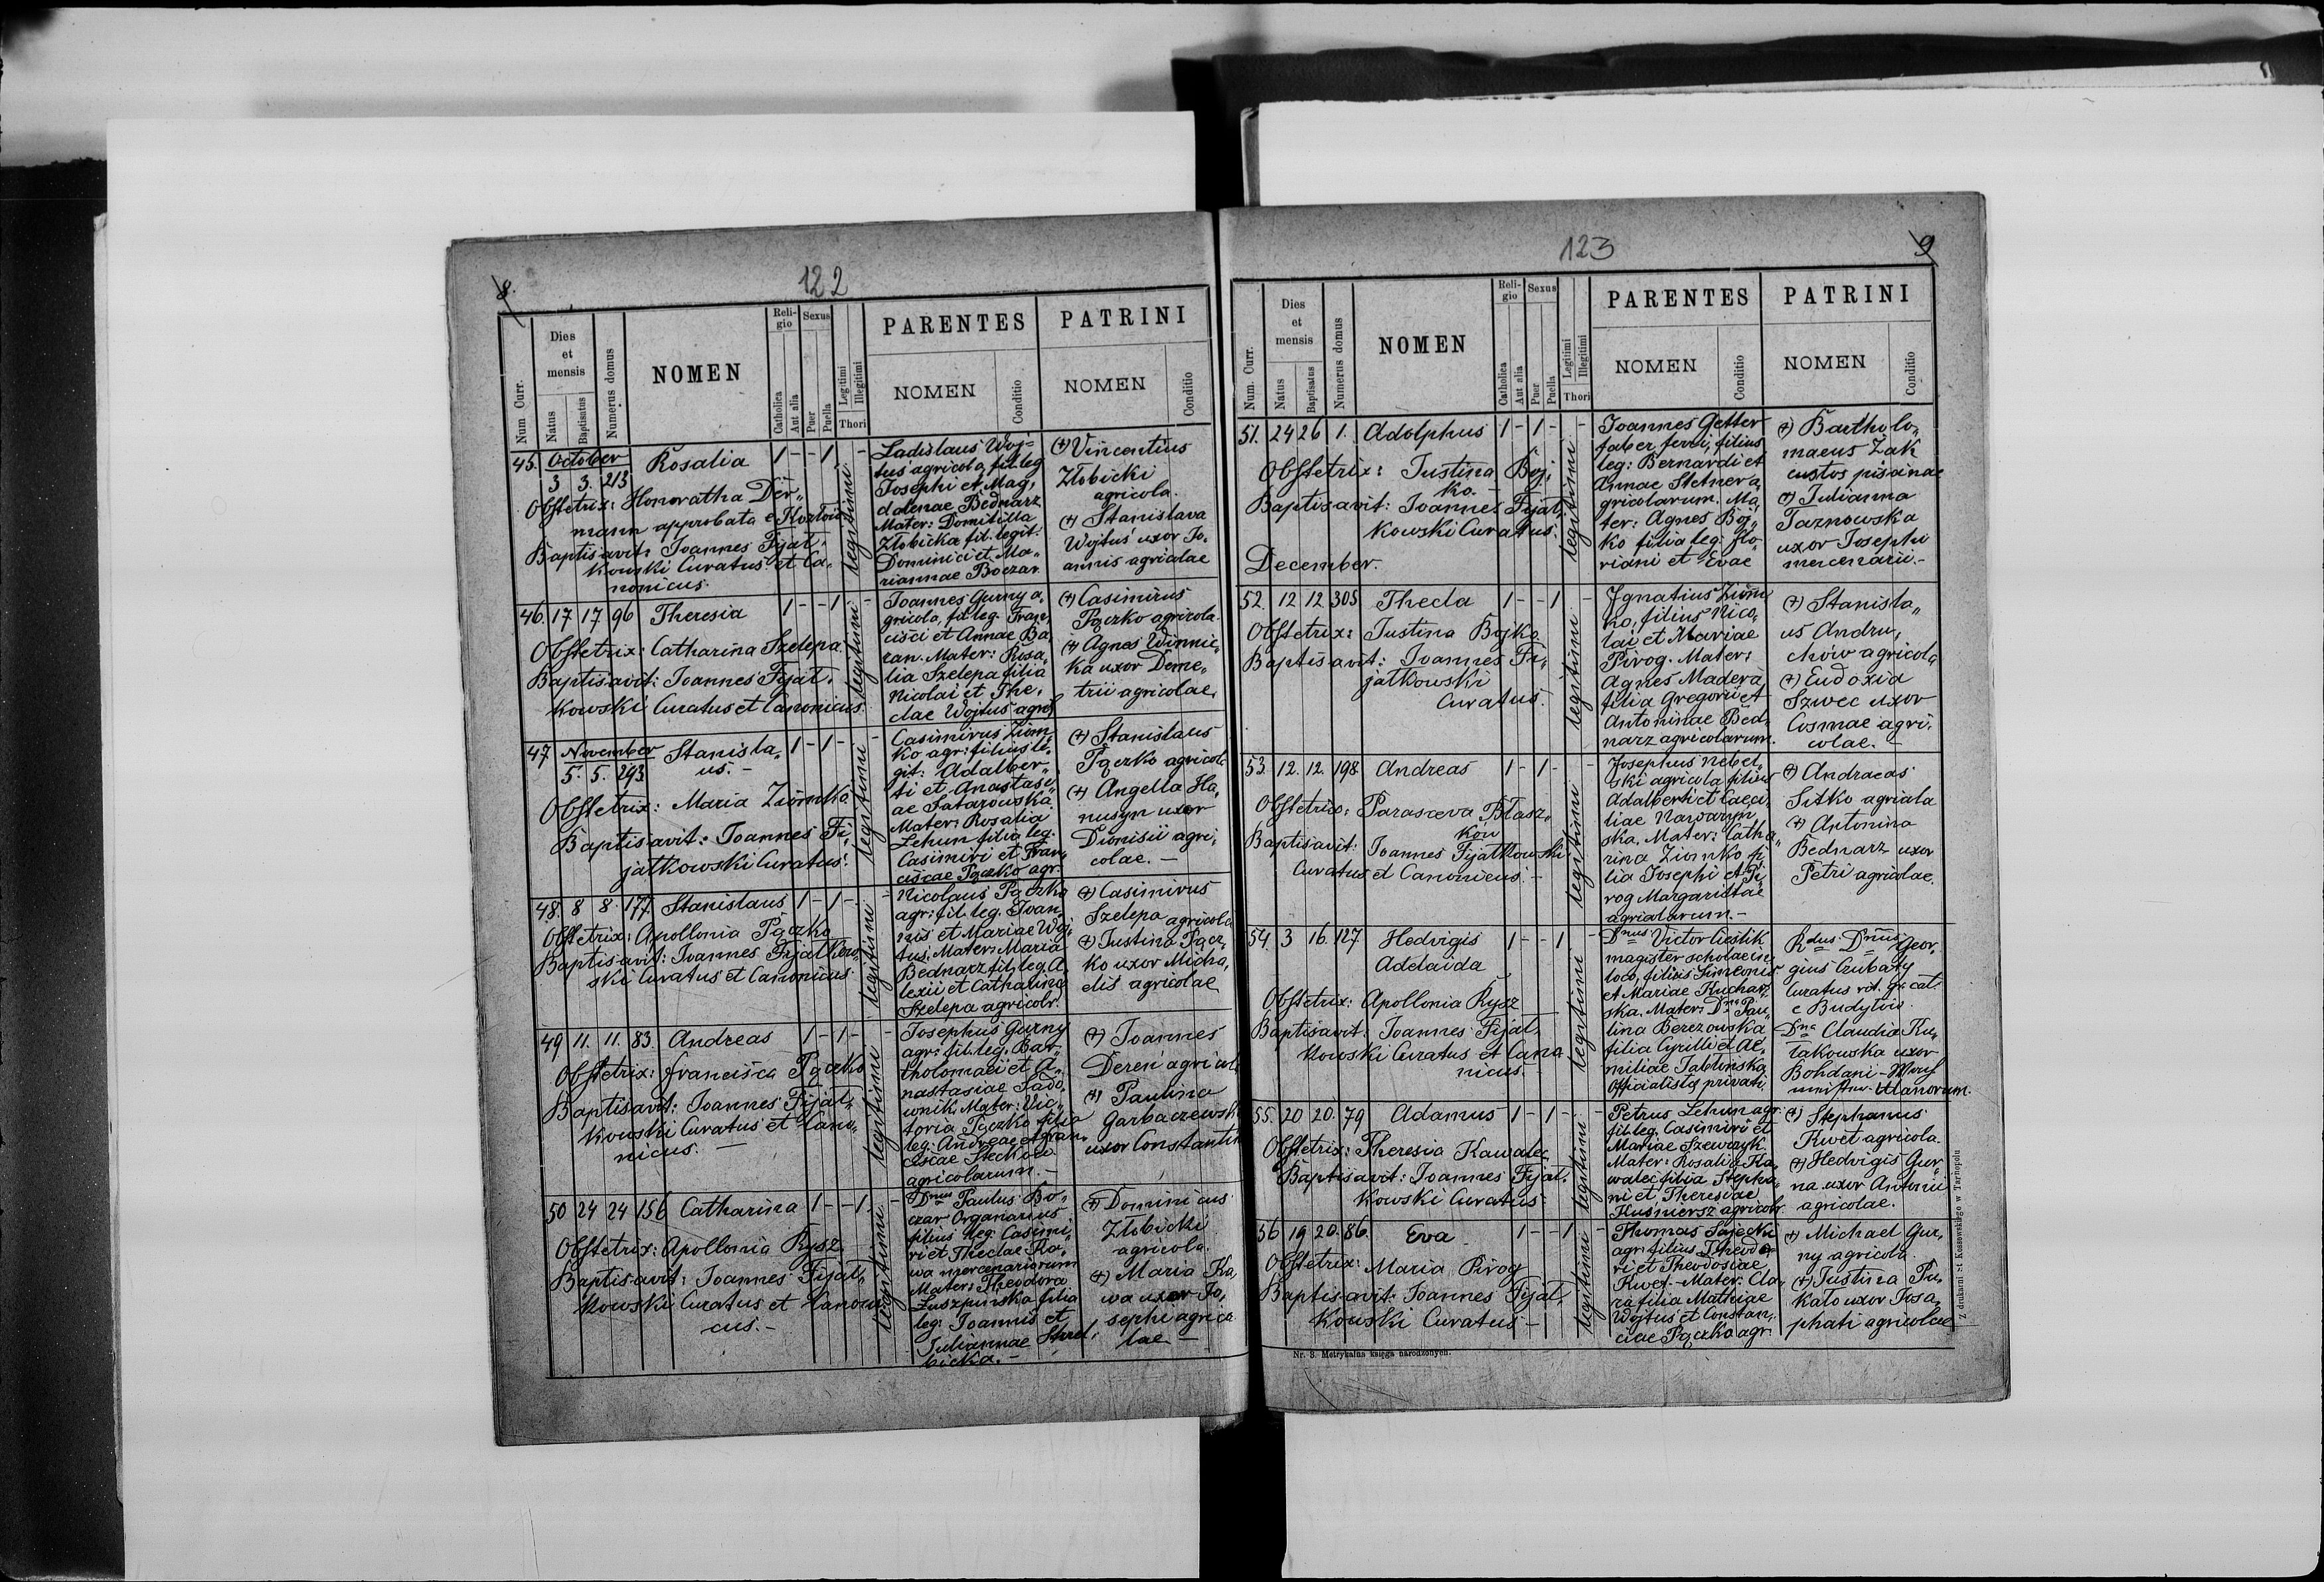 8.
122
Num Curr.
Dies et mensis
Natus
Baptisatus
Numerus domus
NOMEN
Religio
Catholica
Aut alia
Sexus
Puer
Puella
Legitimi
Illegitimi
Thori
PARENTES
NOMEN
Conditio
PATRINI
NOMEN
Conditio
45. October
3 3. 213
Rosalia 1 - - 1 -
Obstetrix: Honoratha Der„
mann approbata e Kozłów
Baptisavit: Joannes Fijał„
kowski Curatus et Ca„
nonicus.
legitimi
Ladislaus Woj=
tus agricola, fil. leg
Josephi et Mag,
dalenae Bednarz
Mater: Domitilla
Złobicka fil. legit.
Dominici et Ma„
riannae Boczar.
(+) Vincentius
Złobicki
agricola.
(+) Stanislava
Wojtus uxor Jo„
annis agricolae
46. 17 17 96 Theresia 1 - - 1 -
Obstetrix: Catharina Szelepa
Baptisavit: Joannes Fijał„
kowski Curatus et Canonicus.
legitimi
Joannes Gurny a,
gricola, fil. leg. Fran,
cisci et Annae Ba,
ran. Mater: Rosa,
lia Szelepa filia
Nicolai et The,
clae Wojtus agrol.
(+) Casimirus
Pączko agricola.
(+) Agnes Winnic„
ka uxor Deme„
trii agricolae,
47 November
5. 5. 293
Stanisla„
us. -
1 - 1 - -
Obstetrix: Maria Ziomko
Baptisavit: Joannes Fi„
jałkowski Curatus.
legitimi
Casimirus Ziom,
ko agr: filius le„
git: Adalber„
ti et Anastasi„
ae Satarowska.
Mater: Rosalia
Lehun filia leg.
Casimiri et Fran,
ciscae Pączko agr.
(+) Stanislaus
Pączko agricola
(+) Angella Ha,
nusyn uxor
Dionisii agri,
colae. -
48. 8 8. 177. Stanislaus 1 - 1 - -
Obstetrix: Apollonia Pączko
Baptisavit: Joannes Fijałkow„
ski Curatus et Canonicus
legitimi
Nicolaus Pączko
agr: fil. leg. Joan„
nis et Mariae Woj„
tus. Mater: Maria
Bednarz fil. leg. A„
lexii et Catharina
Szelepa agricolr.
(+) Casimirus
Szelepa agricola
(+) Justina Pącz„
ko uxor Micha,
elis agricolae
49 11. 11. 83. Andreas 1 - 1 - -
Obstetrix: Francisca Pączko
Baptisavit: Joannes Fijał„
kowski Curatus et Cano„
nicus. -
legitimi
Josephus Gurny
agr: fil. leg. Bar„
tholomaei et A„
nastasiae Sado„
wnik. Mater: Vic„
toria Pączko filia
leg: Andreae et Fran„
ciscae Steckow
agricolarum. -
(+) Joannes
Dereń agricol.
(+) Paulina
Garbaczewsk
uxor Constantin
50 24 24 156 Catharina 1 - - 1 -
Obstetrix: Apollonia Rysz
Baptisavit: Joannes Fijał„
kowski Curatus et Canoni
cus. -
legitimi
Dnus Paulus Bo„
czar Organarius
filius leg: Casimi„
ri et Theclae Ka„
wa mercenariorum
Mater: Theodora
Łuszpińska filia
leg: Joannis et
Juliannae Strel„
bicka. -
(+) Dominicus
Złobicki
agricola.
(+) Maria Ka,
wa uxor Jo,
sephi agrico
lae -
123
9
Num. Curr.
Dies et mensis
Natus
Baptisatus
Numerus domus
NOMEN
Religio
Catholica
Aut alia
Sexus
Puer
Puella
Legitimi
Illegitimi
Thori
PARENTES
NOMEN
Conditio
PATRINI
NOMEN
Conditio
51. 24 26 1. Adolphus 1 - 1 - -
Obstetrix: Justina Boj„
ko. -
Baptisavit: Joannes Fijał„
kowski Curatus.
December.
legitimi
Joannes Getter
faber ferri, filius
leg: Bernardi et
Annae Stetner a,
gricolarum. Ma„
ter: Agnes Boj„
ko filia leg. Flo„
riani et Evae
(+) Bartholo„
maeus Żak
custos pisanae
(+) Julianna
Tarnowska
uxor Josephi
mercenarii. -
52. 12 12 305 Thecla 1 - - 1 -
Obstetrix: Justina Bojko
Baptisavit: Joannes Fi„
jałkowski
Curatus.
legitimi
Ignatius Ziom
ko, filius Nico,
lai et Mariae
Pirog. Mater:
Agnes Madera
filia Gregorii et
Antoninae Bed„
narz agricolarum.
(+) Stanisla„
us Andru„
chów agricola
(+) Eudoxia
Szwec uxor
Cosmae agri,
colae. -
53. 12. 12. 198. Andreas 1 - 1 - -
Obstetrix: Parasceva Błasz„
ków
Baptisavit: Joannes Fijałkowski
Curatus et Canonicus. -
legitimi
Josephus Nebel„
ski agricola filius
Adalberti et Caeci„
liae Nawarym
ska. Mater: Catha„
rina Ziomko fi„
lia Josephi et Pi„
rog Margarittae
agricolarum. -
(+) Andraeas
Sitko agricola
(+) Antonina
Bednarz uxor
Petri agricolae.
54. 3 16. 127 Hedvigis
Adelaida
1 - - 1 -
Obstetrix: Apollonia Rysz
Baptisavit: Joannes Fijał„
kowski Curatus et Cano
nicus. -
legitimi
Dnus Victor Cieślik
magister scholae in
loco, filius Simeonis
et Mariae Kuchar„
ska. Mater: Dna Pau„
lina Berezowska
filia Cyrilli et Ae„
miliae Jabłińska
Officialistą privati
Rdus Dnus Geor„
gius Czubaty
Curatus rit. gr. cat.
e Budyłów.
Dna Claudia Ku„
łakowska uxor
Bohdani -
Ulanorum.
55. 20 20. 79 Adamus 1 - 1 - -
Obstetrix: Theresia Kawalec
Baptisavit: Joannes Fijał„
kowski Curatus
legitimi
Petrus Lehun agr.
fil. leg. Casimiri et
Mariae Szewczyk.
Mater: Rosalia Ka„
walec filia Stepha„
ni et Theresiae
Kusmiersz agricolr.
(+) Stephanus
Kwet agricola.
(+) Hedvigis Gur„
na uxor Antonii
agricolae.
56 19 20. 86. Eva 1 - - 1 -
Obstetrix: Maria Pirog
Baptisavit: Joannes Fijał„
kowski Curatus -
legitimi
Thomas Sajecki
agr: filius Theodo
ri et Theodosiae
Kwet. - Mater: Cla„
ra filia Mathiae
Wojtus et Constan„
ciae Pączko agr.
(+) Michael Gur„
ny agricola.
(+) Justina Pu„
kało uxor Josa„
phati agricolae
Nr. 3. Metrykalna księga narodzonych.
Z drukarni St. Kossowskiego w Tarnopolu